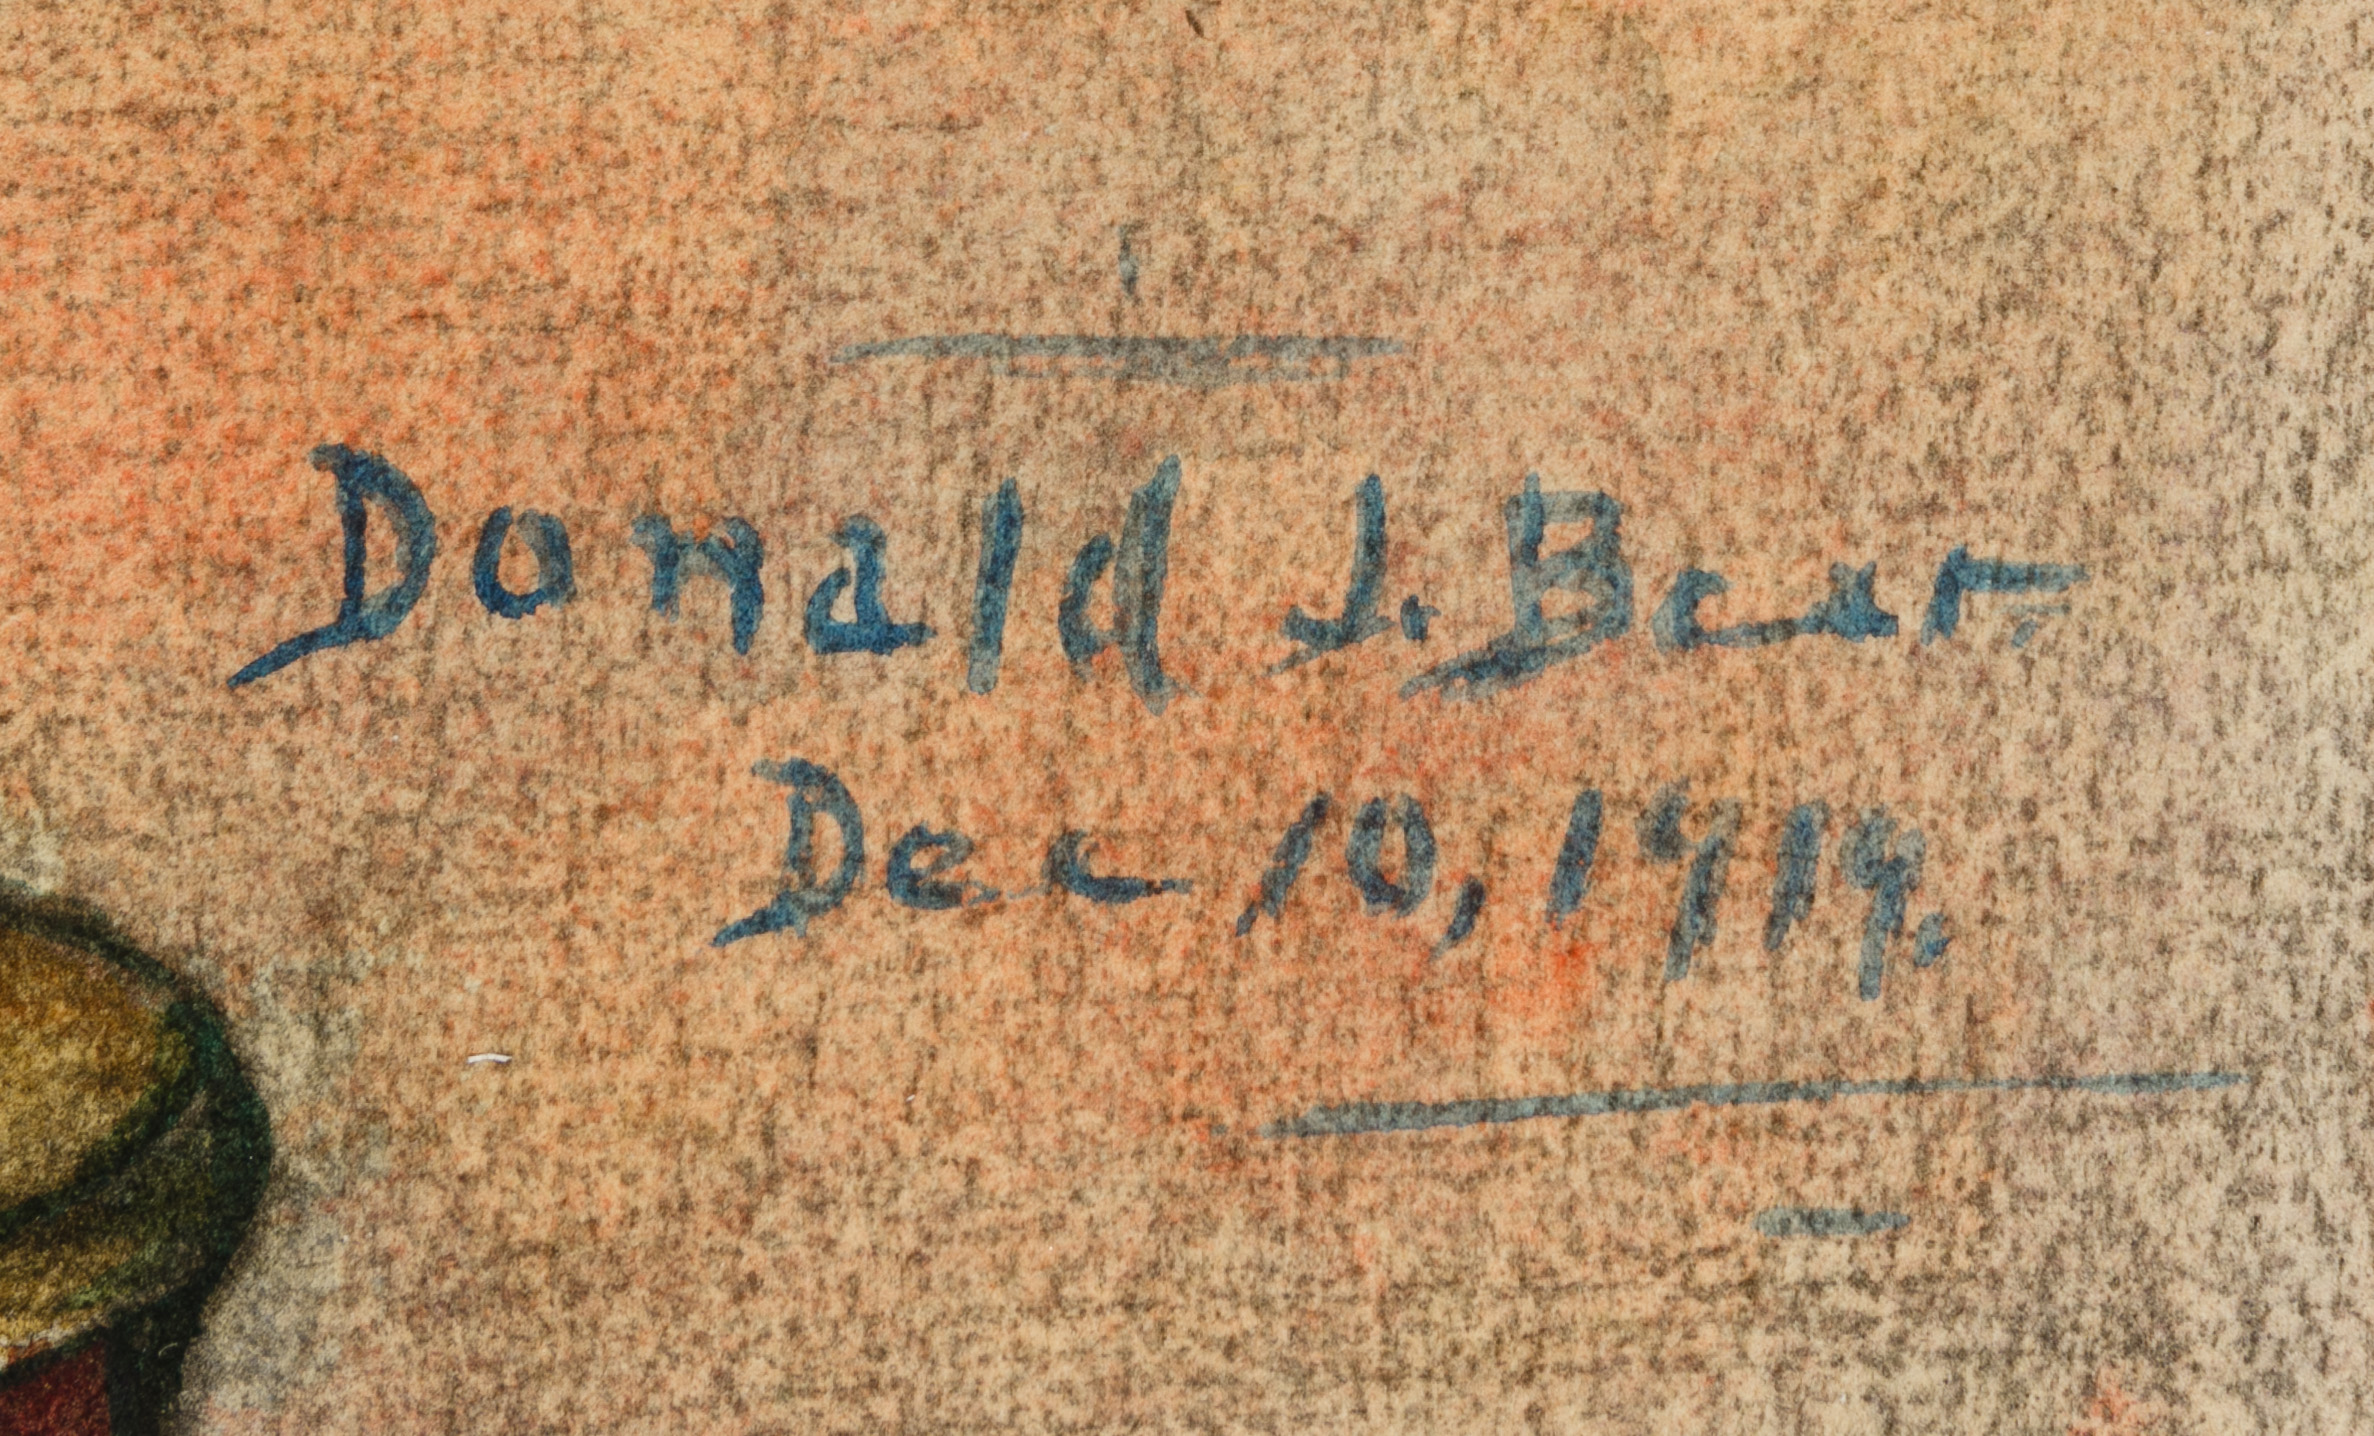 Donald J. Bear
Dec 10, 1919.